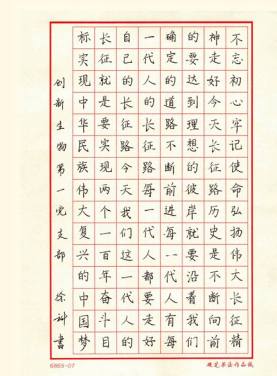 不忘初心牢记使命弘扬伟大长征精
神走好今天长征路历史是不断向前
的要达到理想的彼岸就要沿着我们
确定的道路不断前进每一代人有每
一代人的长征路每一代人都要走好
自己的长征路今天我们这一代人的
长征就是要实现两个一百年奋斗目
标实现中华民族伟大复兴的中国梦
创新生物第一党支部 徐科书
6865-07 硬笔书法作品纸